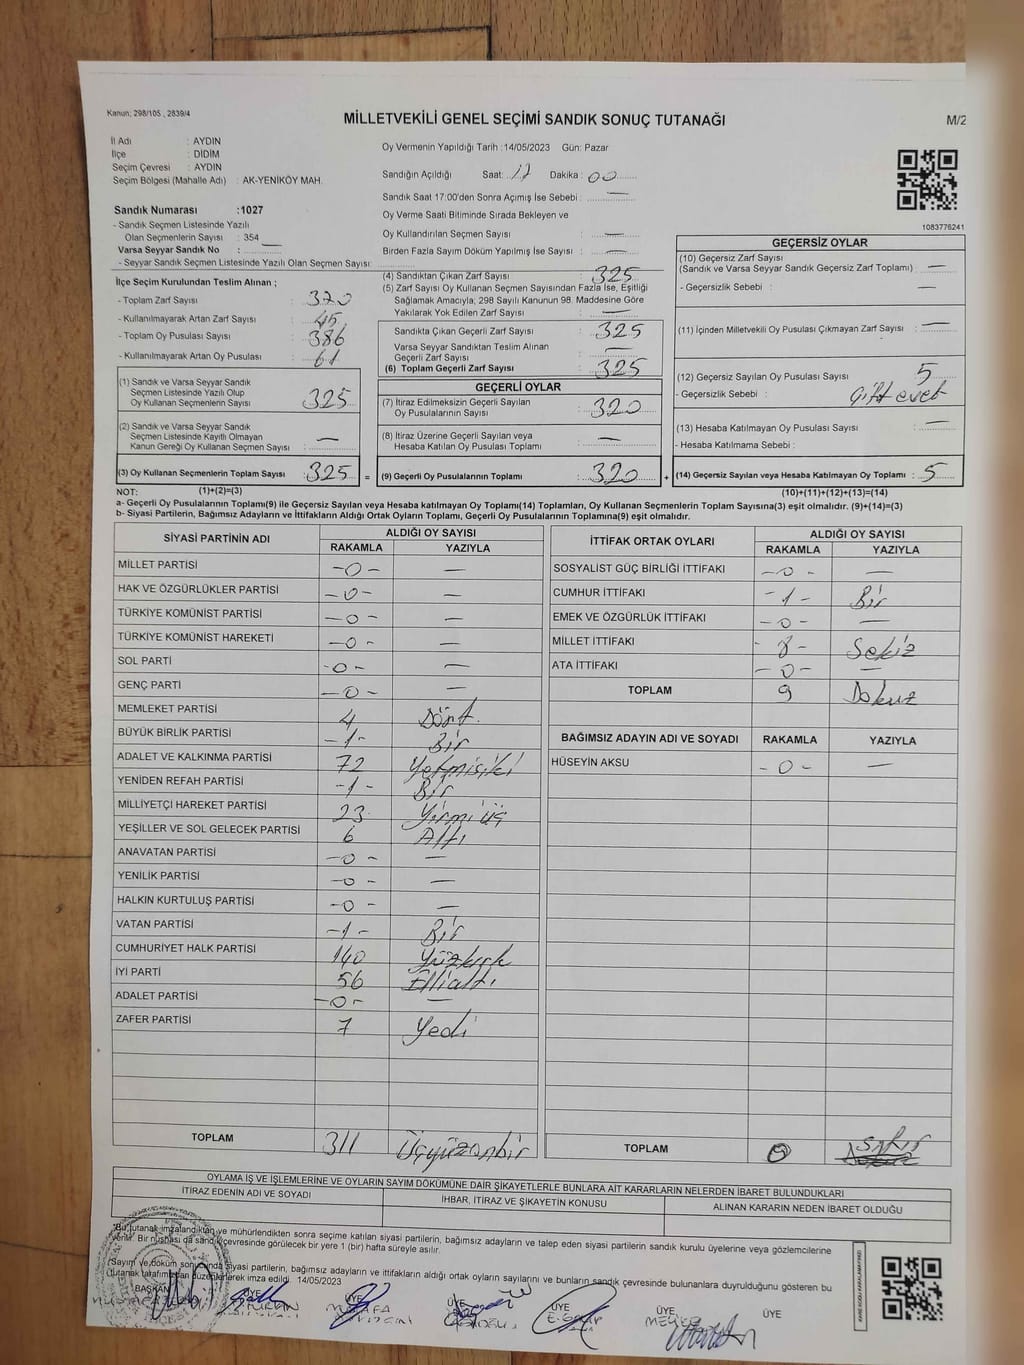 Kanun: 298/105 , 2839/4
MİLLETVEKİLİ GENEL SEÇİMİ SANDIK SONUÇ TUTANAĞI
M/2
İl Adı : AYDIN
İlçe : DİDİM
Seçim Çevresi : AYDIN
Seçim Bölgesi (Mahalle Adı) : AK-YENİKÖY MAH.
Oy Vermenin Yapıldığı Tarih :14/05/2023 Gün: Pazar
Sandığın Açıldığı Saat: 17 Dakika : 00
Sandık Saat 17:00'den Sonra Açımış İse Sebebi : —
Oy Verme Saati Bitiminde Sırada Bekleyen ve
Oy Kullandırılan Seçmen Sayısı : —
Birden Fazla Sayım Döküm Yapılmış İse Sayısı : —
Sandık Numarası :1027
- Sandık Seçmen Listesinde Yazılı
Olan Seçmenlerin Sayısı : 354
Varsa Seyyar Sandık No : —
- Seyyar Sandık Seçmen Listesinde Yazılı Olan Seçmen Sayısı:
İlçe Seçim Kurulundan Teslim Alınan ;
- Toplam Zarf Sayısı : 370
- Kullanılmayarak Artan Zarf Sayısı : 45
- Toplam Oy Pusulası Sayısı : 386
- Kullanılmayarak Artan Oy Pusulası : 61
(1) Sandık ve Varsa Seyyar Sandık
Seçmen Listesinde Yazılı Olup
Oy Kullanan Seçmenlerin Sayısı : 325
(2) Sandık ve Varsa Seyyar Sandık
Seçmen Listesinde Kayıtlı Olmayan
Kanun Gereği Oy Kullanan Seçmen Sayısı : —
(3) Oy Kullanan Seçmenlerin Toplam Sayısı : 325 =
(4) Sandıktan Çıkan Zarf Sayısı : 325
(5) Zarf Sayısı Oy Kullanan Seçmen Sayısından Fazla İse, Eşitliği
Sağlamak Amacıyla, 298 Sayılı Kanunun 98. Maddesine Göre
Yakılarak Yok Edilen Zarf Sayısı : —
Sandıkta Çıkan Geçerli Zarf Sayısı : 325
Varsa Seyyar Sandıktan Teslim Alınan
Geçerli Zarf Sayısı : —
(6) Toplam Geçerli Zarf Sayısı : 325
GEÇERLİ OYLAR
(7) İtiraz Edilmeksizin Geçerli Sayılan
Oy Pusulalarının Sayısı : 320
(8) İtiraz Üzerine Geçerli Sayılan veya
Hesaba Katılan Oy Pusulası Toplamı : —
(9) Geçerli Oy Pusulalarının Toplamı : 320 +
1083776241
GEÇERSİZ OYLAR
(10) Geçersiz Zarf Sayısı
(Sandık ve Varsa Seyyar Sandık Geçersiz Zarf Toplamı) : —
- Geçersizlik Sebebi : —
(11) İçinden Milletvekili Oy Pusulası Çıkmayan Zarf Sayısı : —
(12) Geçersiz Sayılan Oy Pusulası Sayısı : 5
- Geçersizlik Sebebi : Çift evet
(13) Hesaba Katılmayan Oy Pusulası Sayısı : —
- Hesaba Katılmama Sebebi :
(14) Geçersiz Sayılan veya Hesaba Katılmayan Oy Toplamı : 5
NOT: (1)+(2)=(3)
(10)+(11)+(12)+(13)=(14)
a- Geçerli Oy Pusulasının Toplamı(9) ile Geçersiz Sayılan veya Hesaba katılmayan Oy Toplamı(14) Toplamları, Oy Kullanan Seçmenlerin Toplam Sayısına(3) eşit olmalıdır. (9)+(14)=(3)
b- Siyasi Partilerin, Bağımsız Adayların ve İttifakların Aldığı Ortak Oyların Toplamı, Geçerli Oy Pusulalarının Toplamına(9) eşit olmalıdır.
SİYASİ PARTİNİN ADI ALDIĞI OY SAYISI
RAKAMLA YAZIYLA
MİLLET PARTİSİ -0- —
HAK VE ÖZGÜRLÜKLER PARTİSİ -0- —
TÜRKİYE KOMÜNİST PARTİSİ -0- —
TÜRKİYE KOMÜNİST HAREKETİ -0- —
SOL PARTİ -0- —
GENÇ PARTİ -0- —
MEMLEKET PARTİSİ 4 Dört
BÜYÜK BİRLİK PARTİSİ -1- Bir
ADALET VE KALKINMA PARTİSİ 72 Yetmişiki
YENİDEN REFAH PARTİSİ -1- Bir
MİLLİYETÇİ HAREKET PARTİSİ 23 Yirmi üç
YEŞİLLER VE SOL GELECEK PARTİSİ 6 Altı
ANAVATAN PARTİSİ -0- —
YENİLİK PARTİSİ -0- —
HALKIN KURTULUŞ PARTİSİ -0- —
VATAN PARTİSİ -1- Bir
CUMHURİYET HALK PARTİSİ 140 Yüzkırk
İYİ PARTİ 56 Ellialtı
ADALET PARTİSİ -0- —
ZAFER PARTİSİ 7 Yedi
TOPLAM 311 Üçyüzonbir
İTTİFAK ORTAK OYLARI ALDIĞI OY SAYISI
RAKAMLA YAZIYLA
SOSYALİST GÜÇ BİRLİĞİ İTTİFAKI -0- —
CUMHUR İTTİFAKI -1- Bir
EMEK VE ÖZGÜRLÜK İTTİFAKI -0- —
MİLLET İTTİFAKI - 8- Sekiz
ATA İTTİFAKI -0- —
TOPLAM 9 Dokuz
BAĞIMSIZ ADAYIN ADI VE SOYADI RAKAMLA YAZIYLA
HÜSEYİN AKSU -0- —
TOPLAM 0 Sıfır
OYLAMA İŞ VE İŞLEMLERİNE VE OYLARIN SAYIM DÖKÜMÜNE DAİR ŞİKAYETLERLE BUNLARA AİT KARARLARIN NELERDEN İBARET BULUNDUKLARI
İTİRAZ EDENİN ADI VE SOYADI İHBAR, İTİRAZ VE ŞİKAYETİN KONUSU ALINAN KARARIN NEDEN İBARET OLDUĞU
Bu tutanak imzalandıktan ve mühürlendikten sonra seçime katılan siyasi partilerin, bağımsız adayların ve talep eden siyasi partilerin sandık kurulu üyelerine veya gözlemcilerine
verilir. Bir nüshası da sandık çevresinde görülecek bir yere 1 (bir) hafta süreyle asılır.
Sayım ve döküm sonucunda siyasi partilerin, bağımsız adayların ve ittifakların aldığı ortak oyların sayılarını ve bunların sandık çevresinde bulunanlara duyrulduğunu gösteren bu
tutanak tarafımızdan düzenlenerek imza edildi. 14/05/2023
BAŞKAN ÜYE ÜYE ÜYE ÜYE ÜYE ÜYE